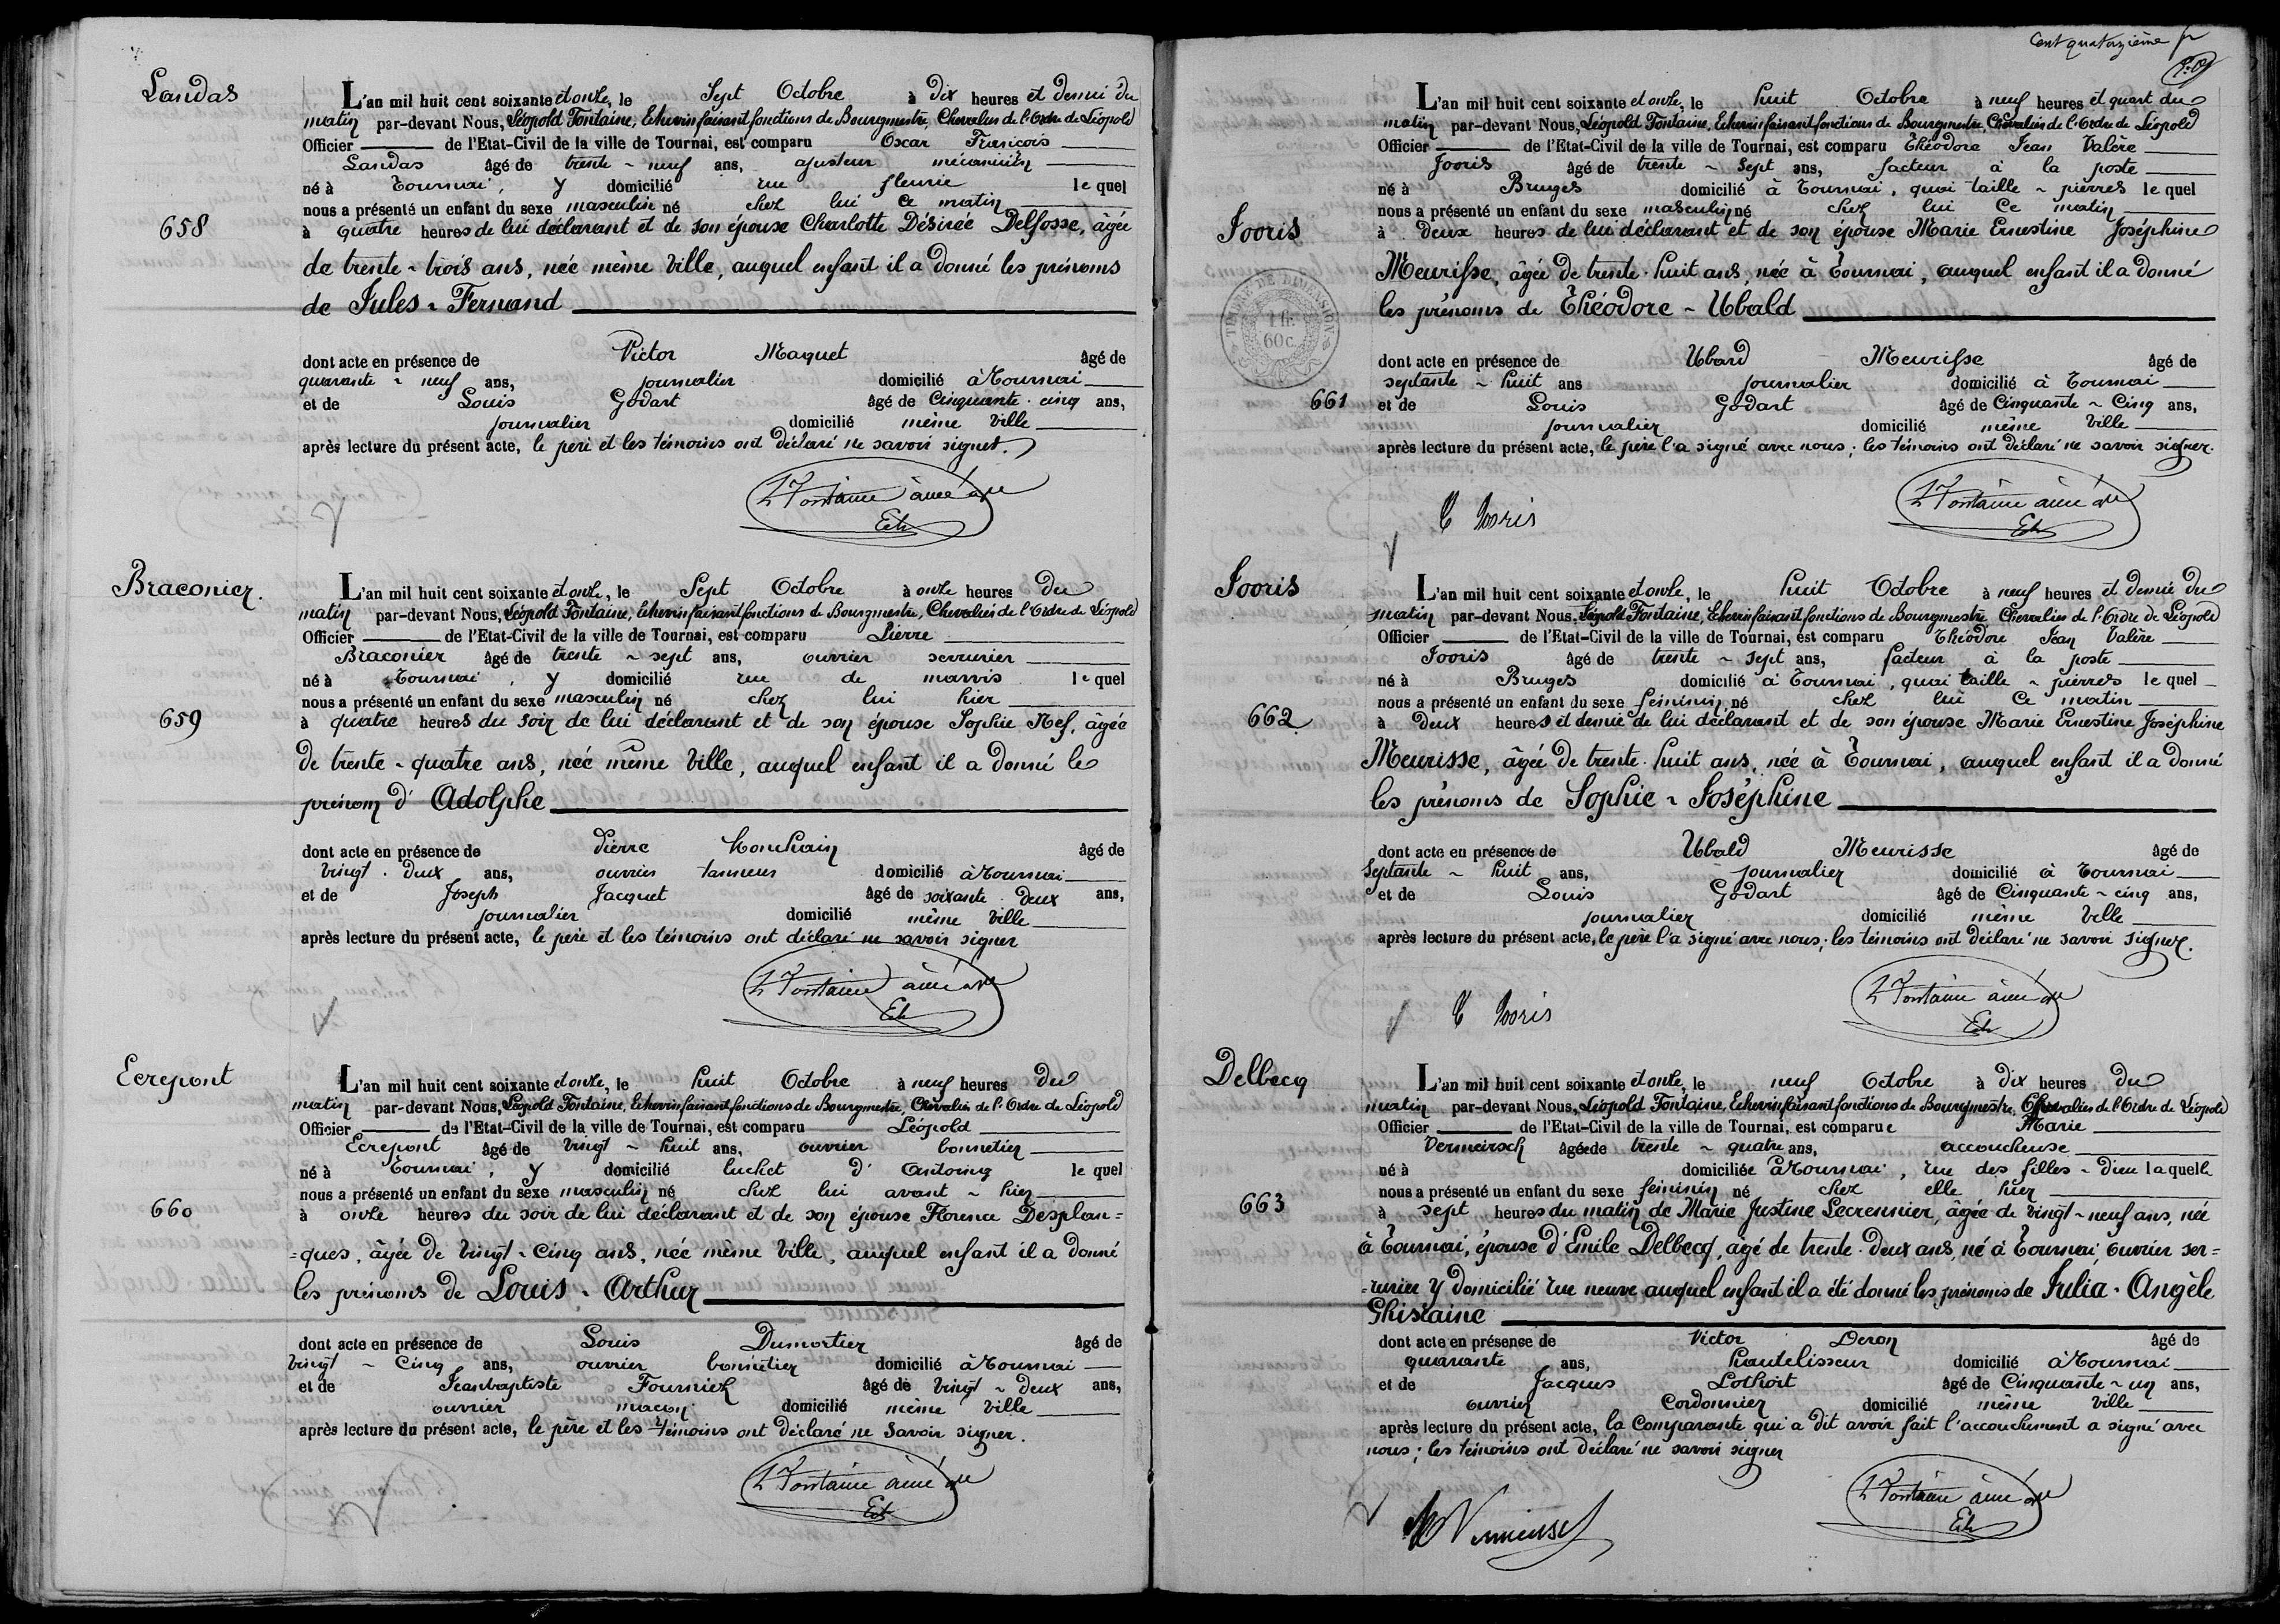 Landas
658
L'an mil huit cent soixante et onze, le Sept Octobre à dix heures et demi du
matin par-devant Nous, Léopold Fontaine, Echevin faisant fonctions de Bourgmestre, Chevalier de l'Ordre de Léopold
Officier de l'Etat-Civil de la ville de Tournai, est comparu Oscar François
Landas âgé de trente-neuf ans, ajusteur mécanicien
né à Tournai, y domicilié rue fleurie lequel
nous a présenté un enfant du sexe masculin né chez lui ce matin
à quatre heures de lui déclarant et de son épouse Charlotte Désirée Delfosse, âgée
de trente-trois ans, née même ville, auquel enfant il a donné les prénoms
de Jules-Fernand
dont acte en présence de Victor Maquet âgé de
quarante-neuf ans, journalier domicilié à Tournai
et de Louis Godart âgé de Cinquante-cinq ans,
journalier domicilié même ville
après lecture du présent acte, le père et les témoins ont déclaré ne savoir signer.
L Fontaine ainé
Ech
Braconier.
659
L'an mil huit cent soixante et onze, le Sept Octobre à onze heures du
matin par-devant Nous, Léopold Fontaine, Echevin faisant fonctions de Bourgmestre, Chevalier de l'Ordre de Léopold
Officier de l'Etat-Civil de la ville de Tournai, est comparu Pierre
Braconier âgé de trente-sept ans, ouvrier serrurier
né à Tournai, y domicilié rue de marvis lequel
nous a présenté un enfant du sexe masculin né chez lui hier
à quatre heures du soir de lui déclarant et de son épouse Sophie Nef, âgée
de trente-quatre ans, née même ville, auquel enfant il a donné le
prénom d'Adolphe
dont acte en présence de Pierre Monchain âgé de
vingt-deux ans, ouvrier tanneur domicilié à Tournai
et de Joseph Jacquet âgé de soixante-deux ans,
journalier domicilié même ville
après lecture du présent acte, le père et les témoins ont déclaré ne savoir signer
L Fontaine ainé
Ech
Ecrepont
660
L'an mil huit cent soixante et onze, le huit Octobre à neuf heures du
matin par-devant Nous, Léopold Fontaine, Echevin faisant fonctions de Bourgmestre, Chevalier de l'Ordre de Léopold
Officier de l'Etat-Civil de la ville de Tournai, est comparu Léopold
Ecrepont âgé de vingt-huit ans, ouvrier bonnetier
né à Tournai, y domicilié luchet d'Antoing lequel
nous a présenté un enfant du sexe masculin né chez lui avant-hier
à onze heures du soir de lui déclarant et de son épouse Florence Desplan=
=ques, âgée de vingt-cinq ans, née même ville, auquel enfant il a donné
les prénoms de Louis-Arthur
dont acte en présence de Louis Dumortier âgé de
vingt-cinq ans, ouvrier bonnetier domicilié à Tournai
et de Jeanbaptiste Fourniez âgé de vingt-deux ans,
ouvrier maçon domicilié même ville
après lecture du présent acte, le père et les témoins ont déclaré ne savoir signer.
L Fontaine ainé
Ech
Cent quatorzième
Jooris
TIMBRE DE DIMENSION
1 fr.
60 c.
661
L'an mil huit cent soixante et onze, le huit Octobre à neuf heures et quart du
matin par-devant Nous, Léopold Fontaine, Echevin faisant fonctions de Bourgmestre, Chevalier de l'Ordre de Léopold
Officier de l'Etat-Civil de la ville de Tournai, est comparu Théodore Jean Valère
Jooris âgé de trente-sept ans, facteur à la poste
né à Bruges domicilié à Tournai, quai taille-pierres lequel
nous a présenté un enfant du sexe masculin né chez lui ce matin
à deux heures de lui déclarant et de son épouse Marie Ernestine Joséphine
Meurisse, âgée de trente-huit ans, née à Tournai, auquel enfant il a donné
les prénoms de Théodore-Ubald
dont acte en présence de Ubard Meurisse âgé de
septante-huit ans journalier domicilié à Tournai
et de Louis Godart âgé de Cinquante-Cinq ans,
journalier domicilié même ville
après lecture du présent acte, le père l'a signé avec nous; les témoins ont déclaré ne savoir signer.
T Jooris
L Fontaine ainé
Ech
Jooris
662
L'an mil huit cent soixante et onze, le huit Octobre à neuf heures et demie du
matin par-devant Nous, Léopold Fontaine, Echevin faisant fonctions de Bourgmestre, Chevalier de l'Ordre de Léopold
Officier de l'Etat-Civil de la ville de Tournai, est comparu Théodore Jean Valère
Jooris âgé de trente-sept ans, facteur à la poste
né à Bruges domicilié à Tournai, quai taille-pierres lequel
nous a présenté un enfant du sexe féminin né chez lui ce matin
à deux heures et demie de lui déclarant et de son épouse Marie Ernestine Joséphine
Meurisse, âgée de trente-huit ans, née à Tournai, auquel enfant il a donné
les prénoms de Sophie-Joséphine
dont acte en présence de Ubald Meurisse âgé de
Septante-huit ans, journalier domicilié à Tournai
et de Louis Godart âgé de Cinquante-cinq ans,
journalier domicilié même ville
après lecture du présent acte, le père l'a signé avec nous; les témoins ont déclaré ne savoir signer.
T Jooris
L Fontaine ainé
Ech
Delbecq
663
L'an mil huit cent soixante et onze, le neuf Octobre à dix heures du
matin par-devant Nous, Léopold Fontaine, Echevin faisant fonctions de Bourgmestre, Chevalier de l'Ordre de Léopold
Officier de l'Etat-Civil de la ville de Tournai, est comparue Marie
Vermeirsch âgée de trente-quatre ans, accoucheuse
né à domiciliée à Tournai, rue des filles-Dieu laquelle
nous a présenté un enfant du sexe féminin né chez elle hier
à sept heures du matin de Marie Justine Lecrennier, âgée de vingt-neuf ans, née
à Tournai, épouse d'Emile Delbecq, âgé de trente-deux ans, né à Tournai ouvrier ser=
=rurier y domicilié rue neuve auquel enfant il a été donné les prénoms de Julia-Angèle
Ghislaine
dont acte en présence de Victor Deron âgé de
quarante ans, hautelisseur domicilié à Tournai
et de Jacques Lothoit âgé de Cinquante-un ans,
ouvrier Cordonnier domicilié même ville
après lecture du présent acte, la Comparante qui a dit avoir fait l'accouchement a signé avec
nous; les témoins ont déclaré ne savoir signer
L Fontaine ainé
Ech